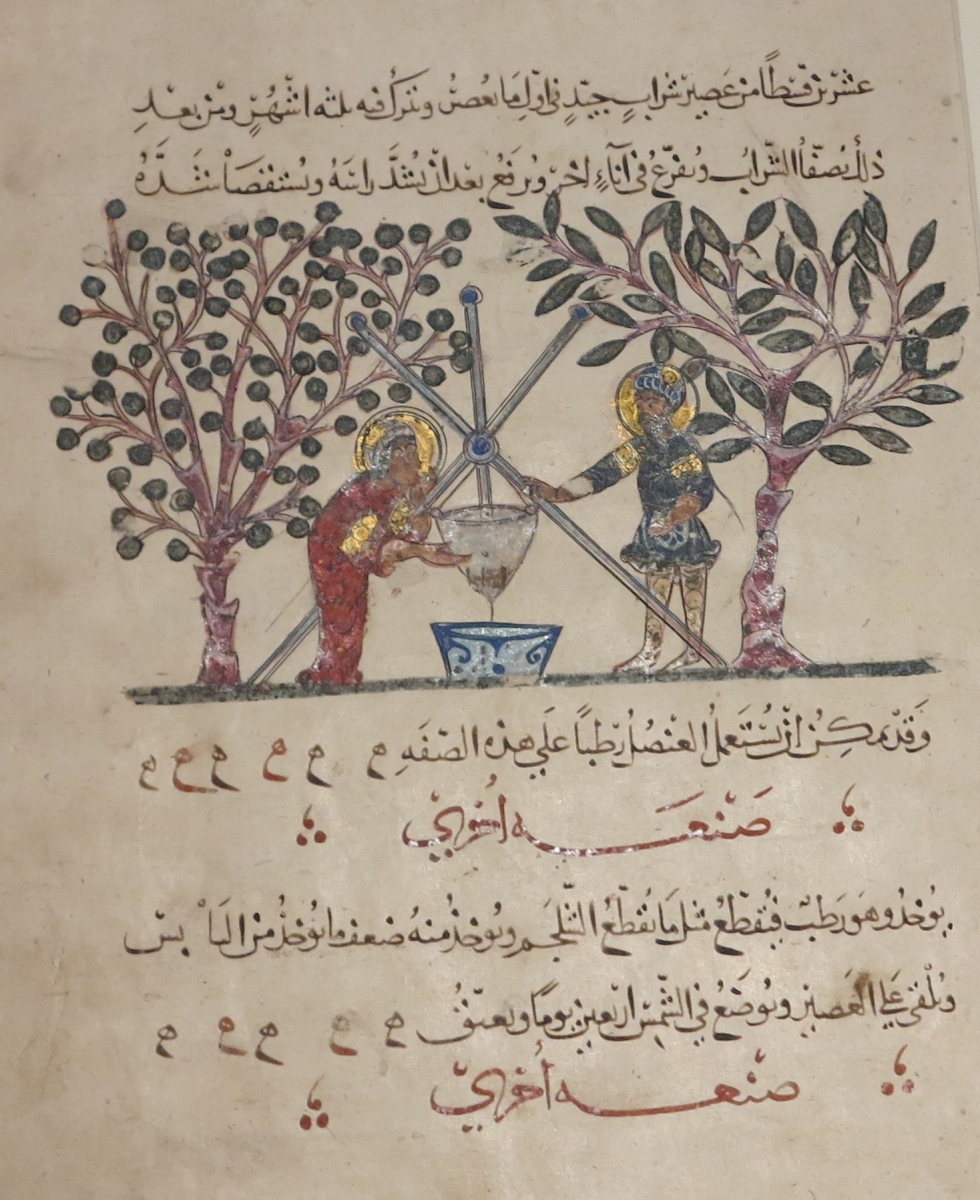 عشرين قسطًا من عصير شراب جيّدٍ في اول ما يعصر ويترك فيه ثلثة اشهُرٍ ومن بعد
ذلك يُصفّا الشرابُ ويُفرّغ في آناءٍ اخر ويُرفَع بعد ان يُشَدَّ راسَهُ ويُستقصَا شَدّهُ
وَقَد يمكِنُ ان يُستَعملُ العُنصُل رَطبًا عَلي هذه الصّفَه م م م م م م
صَنعَه أُخرَي
يوخذُ وهَو رَطبٌ فيُقطّعُ مثل مَا يُقطّعُ الثّلجَم ويُوخذُ منهُ ضعف ما يُوخذُ من اليَابسْ
ويُلْقَى عَلي العَصيرِ ويُوضَعُ في الشّمسْ اربَعينَ يومًا ويُعتّقُ م م م م م
صنعه أُخرَي